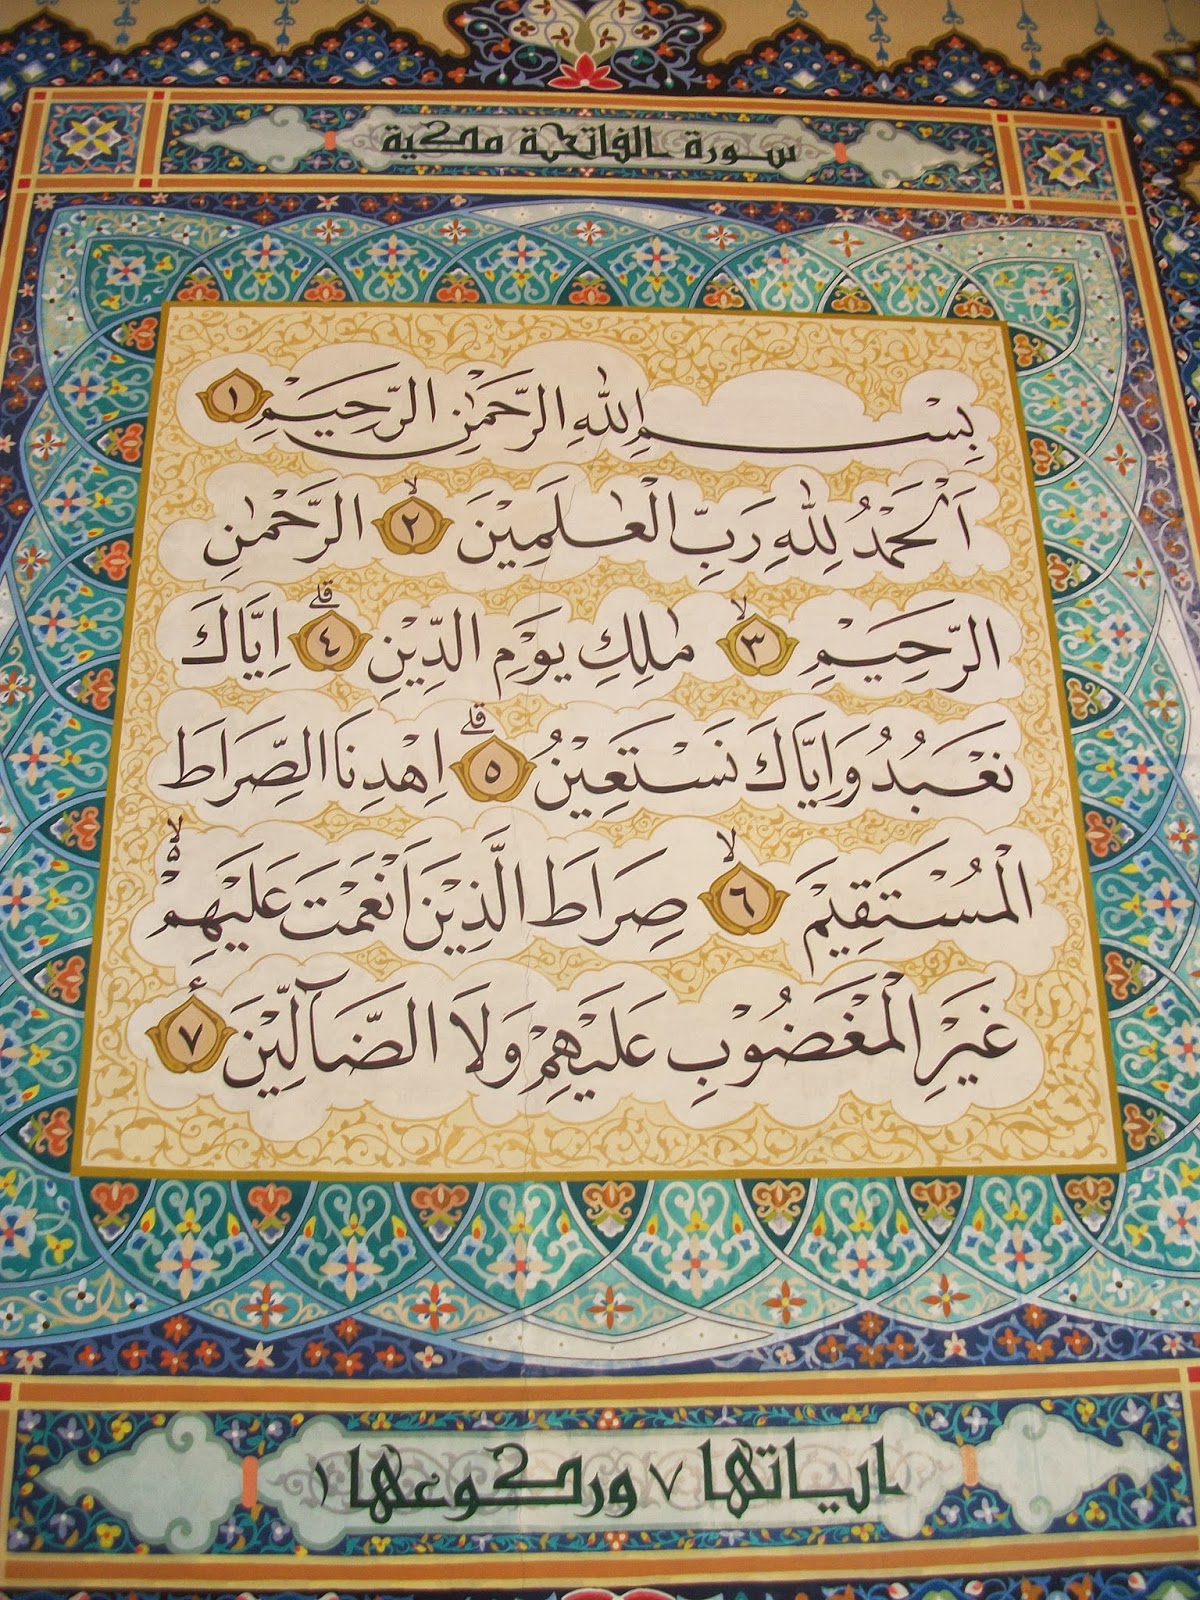 سورة الفاتحة مكية
بِسْمِ اللهِ الرَّحْمٰنِ الرَّحِيْمِ ١
اَلْحَمْدُ لِلّٰهِ رَبِّ الْعٰلَمِيْنَ ۙ٢ الرَّحْمٰنِ
الرَّحِيْمِ ۙ٣ مٰلِكِ يَوْمِ الدِّيْنِ ۗ٤ اِيَّاكَ
نَعْبُدُ وَاِيَّاكَ نَسْتَعِيْنُ ۗ٥ اِهْدِنَا الصِّرَاطَ
الْمُسْتَقِيْمَ ۙ٦ صِرَاطَ الَّذِيْنَ اَنْعَمْتَ عَلَيْهِمْ ۙ۵
غَيْرِ الْمَغْضُوْبِ عَلَيْهِمْ وَلَا الضَّآلِّيْنَ ٧
اياتها ٧ وركوعها ١